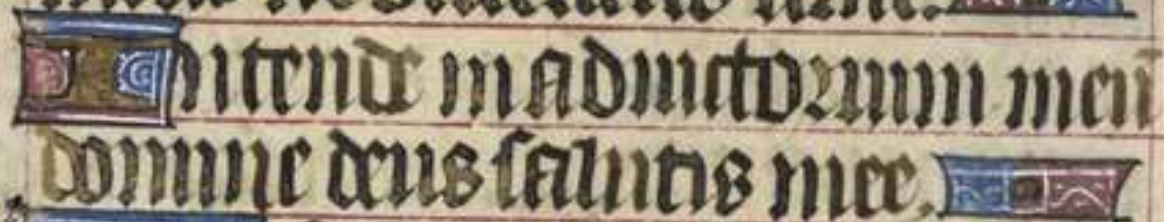 Intende in adiutorium meū
domine deus salutis mee.